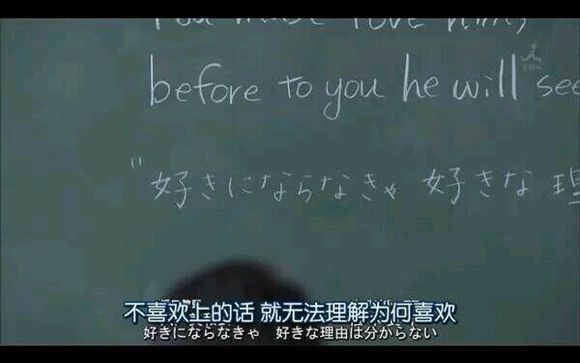 You must love him,
before to you he will see
"好きにならなきゃ 好きな 理
不喜欢上的话 就无法理解为何喜欢
好きにならなきゃ 好きな理由は分からない